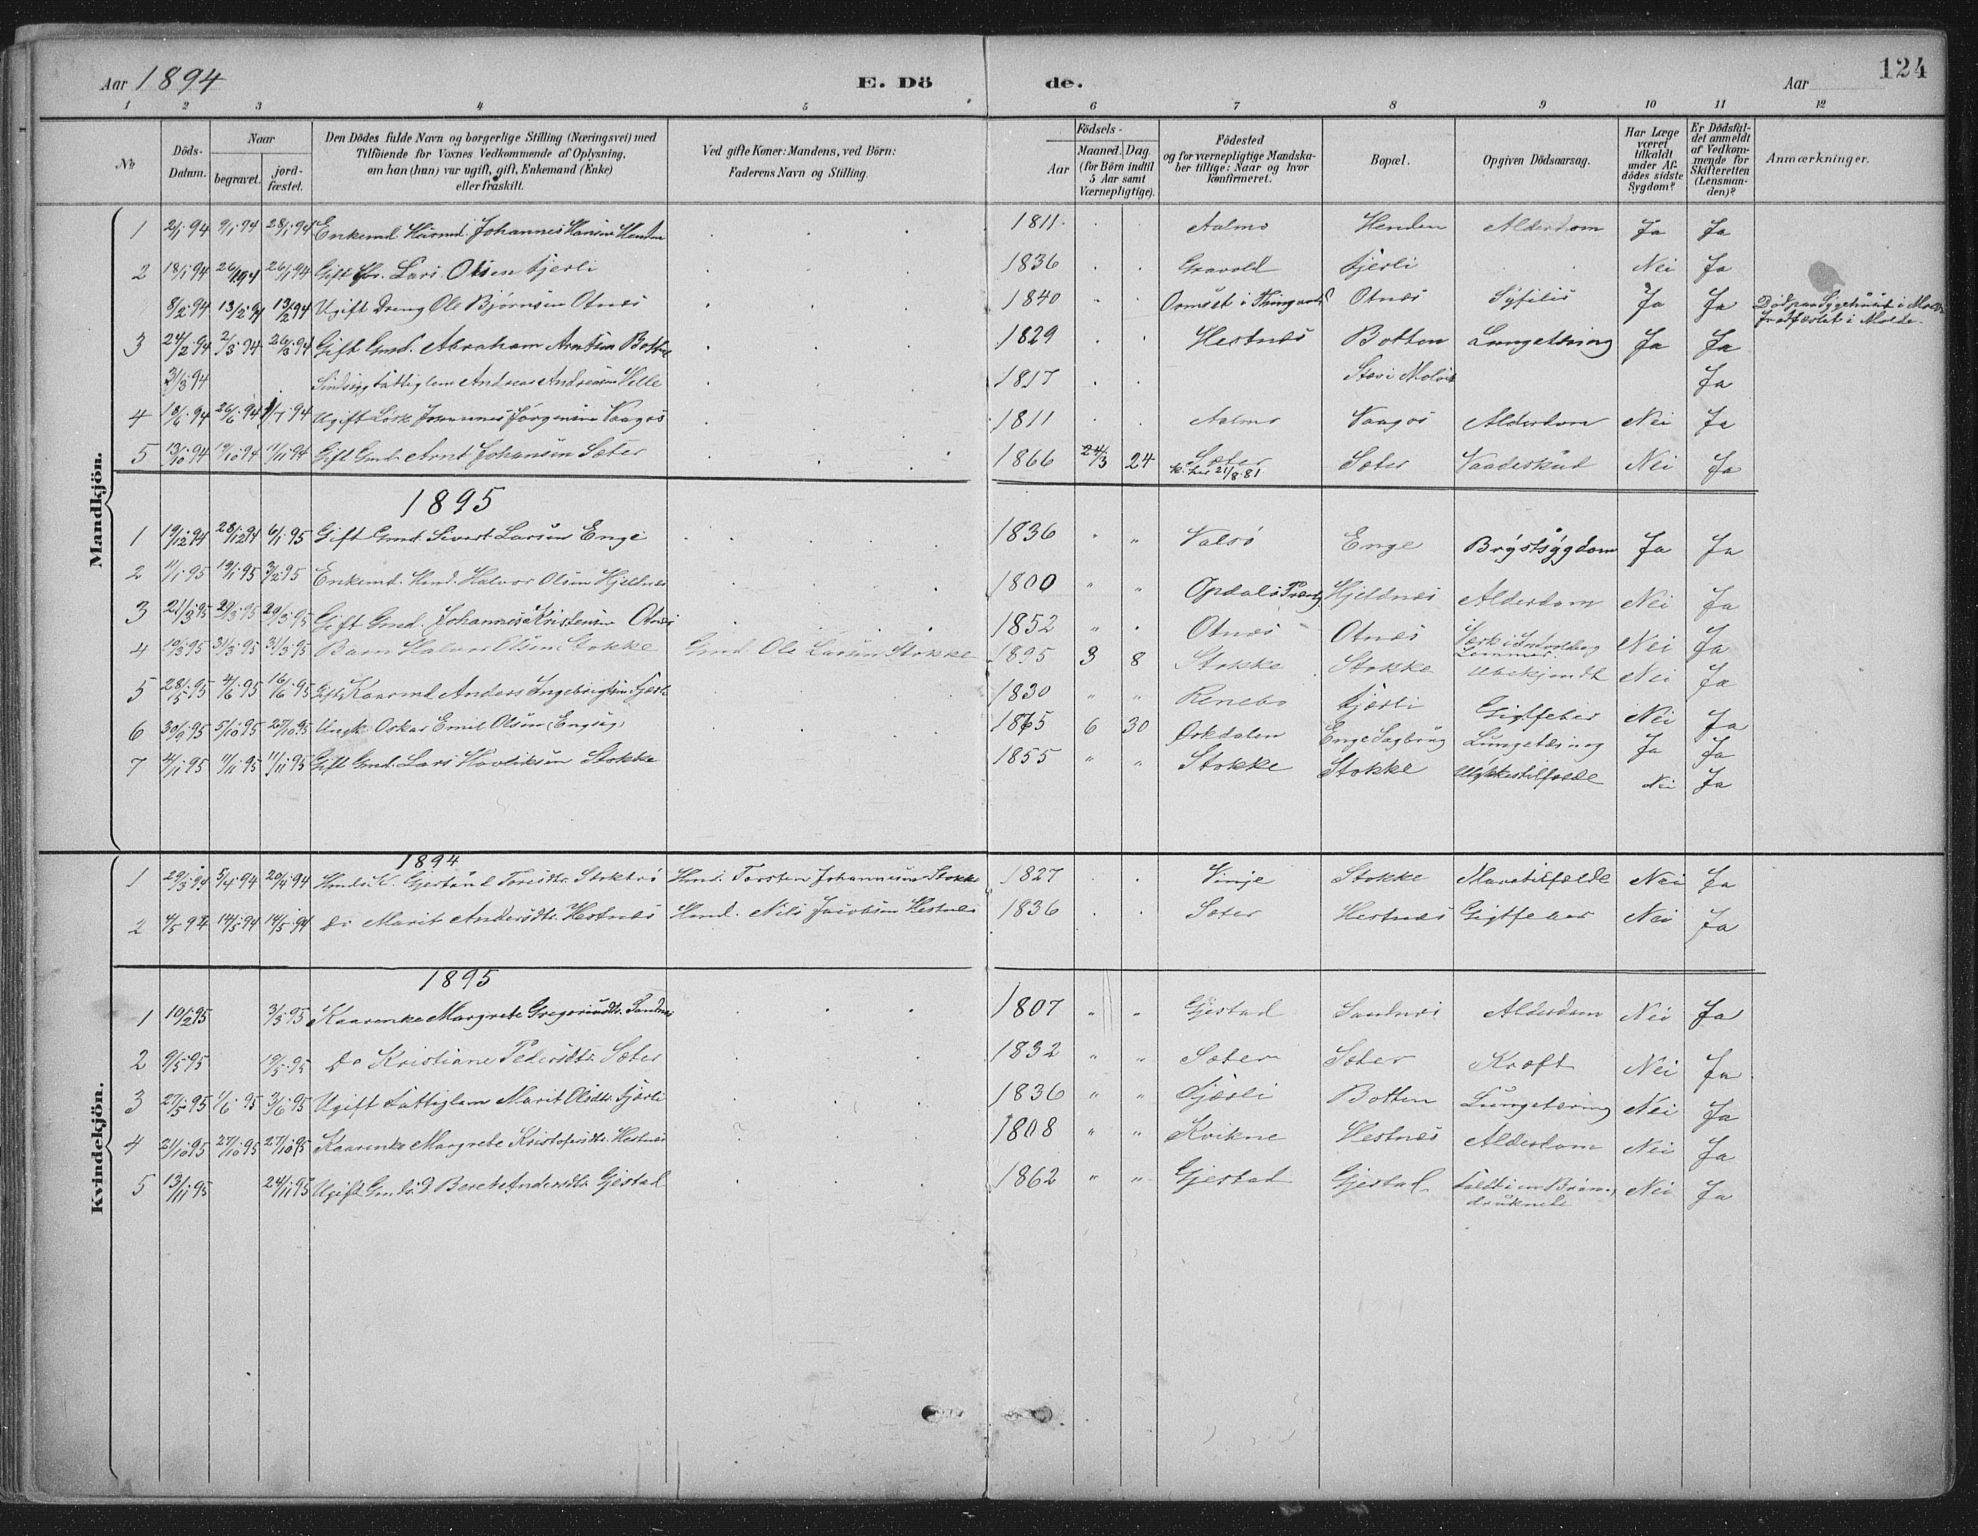 Aar 1894 E. Dö de. Aar 124
1 2 3 4 5 6 7 8 9 10 11 12
No Döds-Datum. Naar begravet. jord-fæstet. Den Dödes fulde Navn og borgerlige Stilling (Næringsvei) med Tilföiende for Voxnes Vedkommende af Oplysning, om han (hun) var ugift, gift, Enkemand (Enke) eller fraskilt. Ved gifte Koner: Mandens, ved Börn: Faderens Navn og Stilling. Födsels- Aar Maaned. Dag (for Börn indtil 5 Aar samt Værnepligtige). Födested og for værnepligtige Mandskaber tillige: Naar og hvor konfirmeret. Bopæl. Opgiven Dödsaarsag. Har Læge været tilkaldt under Afdödes sidste Sygdom? Er Dödsfaldet anmeldt af Vedkommende for Skifteretten (Lensmanden)? Anmærkninger.
Mandkjön.
1 2/1 94 9/1 94 28/1 94 Enkemd. Johannes Hansen Henden 1811 Aalmo Henden Alderdom Ja Ja
2 18/1 94 26/1 94 26/1 94 Gift Lars Olsen Fjerli 1836 Gravold Fjerli Nei Ja
8/2 94 13/2 94 13/2 94 Ugift Dreng Ole Björnsen Otnes 1840 Otnes Syfilis Ja Ja Död paa Sygehuset i Molde
Jordfæstet i Molde.
3 24/2 94 2/3 94 26/3 94 Gift Gmd. Abraham Arntsen Botten 1829 Hestnes Botten Lungetæring Ja Ja
3/3 94 Sindssyg Fattiglem Andreas Andreasen 1817 Ja
4 18/6 94 26/6 94 1/7 94 Ugift Johannes Jørgensen Vaagos 1811 Aalmo Vaagos Alderdom Nei Ja
5 13/10 94 19/10 94 11/11 94 Gift Gmd. Arnt Johansen Sæter 1866 24/3 24 Sæter Sæter Vaadeskud Nei Ja
21/8 81
1895
1 19/12 94 28/12 94 6/1 95 Gift Gmd. Sivert Larsen Enge 1836 " " Valsö Enge Brystsygdom Ja Ja
2 11/1 95 19/1 95 3/2 95 Enkemd. Halvor Olsen Hjeldnes 1800 " " Opdal Hjeldnes Alderdom Nei Ja
3 21/3 95 29/3 95 29/3 95 Gift Gmd. Johannes Kristensen Otnes 1852 " Otnes Otnes Nei Ja
4 19/3 95 31/3 95 31/3 95 Barn Halvor Olsen Stokke Gmd. Ole Larsen Stokke 1895 3 8 Stokke Stokke Ubekjendt Nei Ja
5 28/5 95 4/6 95 16/6 95 Gift Kaarmd. Anders Ingebrigtsen Fjærli 1830 " " Renebo Fjærli Gigtfeber Nei Ja
6 30/9 95 5/10 95 27/10 95 Ungk. Oskar Emil Olsen (Engsag) 1865 6 30 Orkdalen Enge Sagbrug Lungetæring Ja Ja
7 4/11 95 11/11 95 11/11 95 Gift Gmd. Lars Havliksen Stokke 1855 " " Stokke Stokke Ulykkestilfælde Nei Ja
Kvindekjön.
1894
1 29/3 94 5/4 94 20/4 94 Gjertrud Toresdtr. Hmd. Torsten Johannesen Stokke 1827 Vinje Stokke Mavetilfælde Nei Ja
2 4/5 94 14/5 94 14/5 94 Do Marit Andersdtr. Hestnes Hmd. Nils Jacobsen Hestnes 1836 Sæter Hestnes Gigtfeber Nei Ja
1895
1 10/2 95 3/3 95 Kaarenke Margrete Gregoriusdtr. Sandnes 1807 " " Gjestad Sandnes Alderdom Nei Ja
2 9/5 95 19/5 95 Do Kristiane Pedersdtr. Sæter 1832 " " Sæter Sæter Kræft Nei Ja
3 27/5 95 1/6 95 3/6 95 Ugift Fattiglem Marit Olsdtr. Fjærli 1836 " " Fjærli Botten Lungetæring Nei Ja
4 21/10 95 27/10 95 27/10 95 Kaarenke Margrete Kristofersdtr. Hestnes 1808 " " Kvikne Hestnes Alderdom Nei Ja
5 13/11 95 24/11 95 Ugift Gmds. D. Beret Andersdtr. Gjestad 1862 " " Gjestad Gjestad Faldt i en Brønd,
druknede Nei Ja